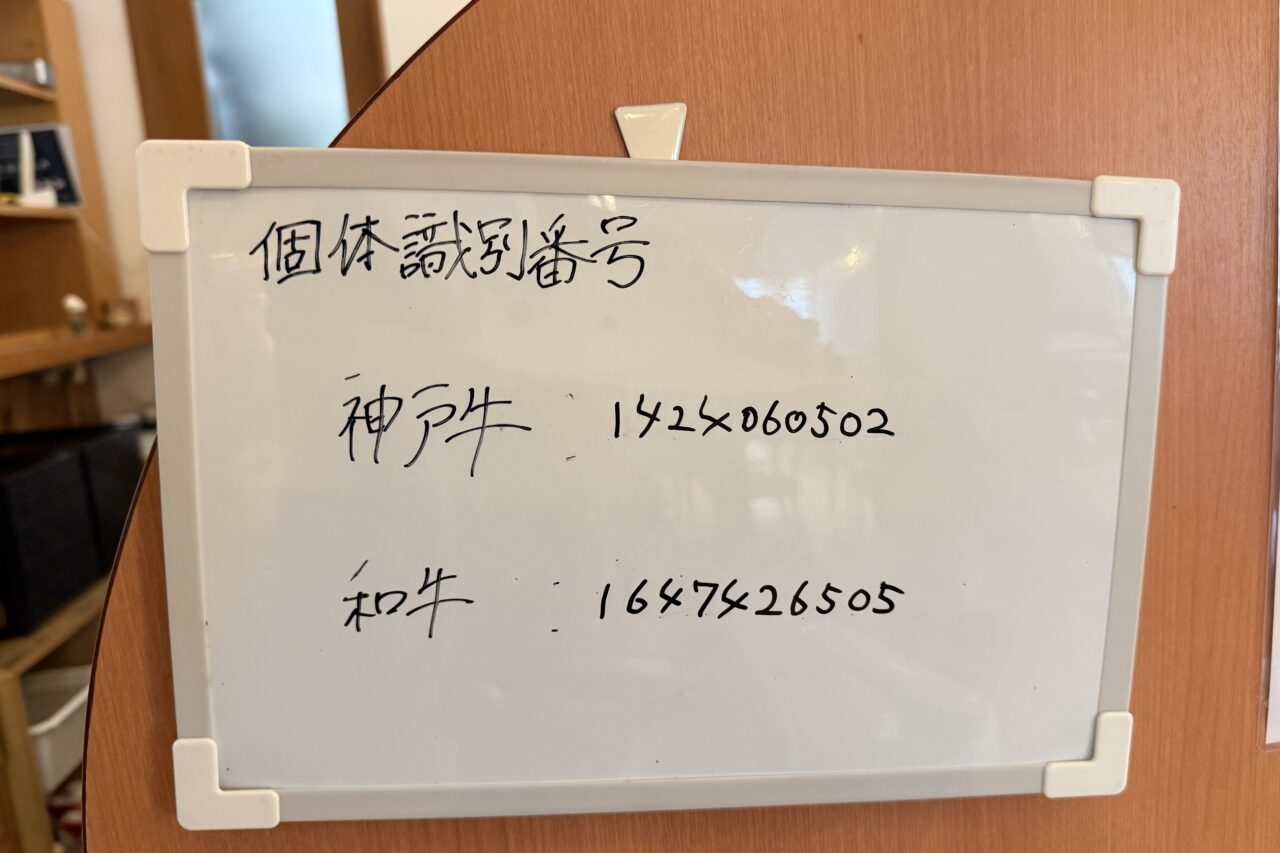 個体識別番号
神戸牛 : 1424060502
和牛 : 1647426505